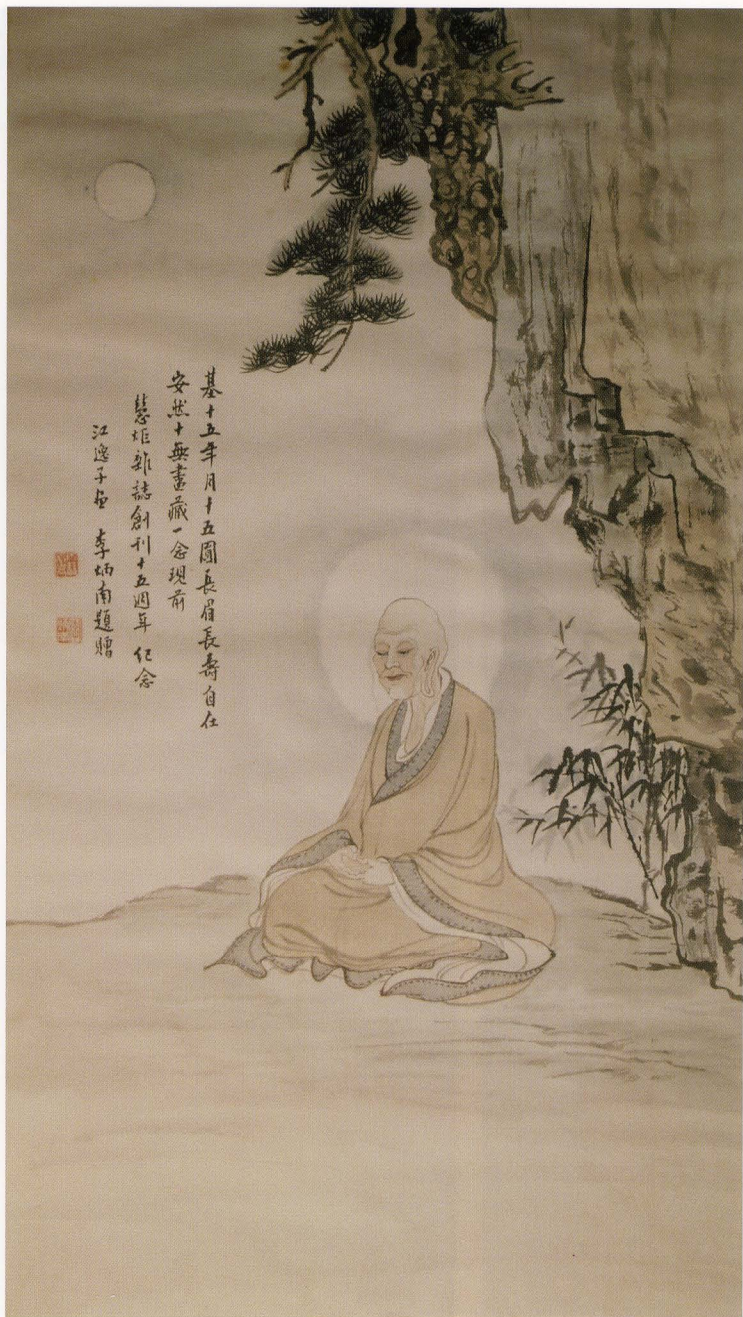 基十五年月十五圓長眉長壽自在
安然十無盡藏一念現前
慧炬雜誌創刊十五週年 紀念
江逸子畫 李炳南題贈